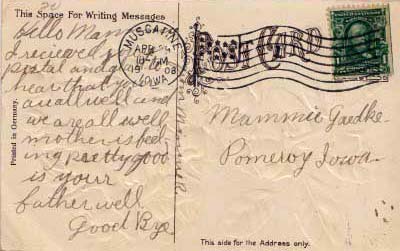 This Space For Writing Messages
Hello Mam
I recieved
postal and g
hear that
are all well and
we are all well
mother is feel-
ing pretty good
is your
father well
Good Bye
Printed in Germany.
MUSCATINE
APR
1908
IOWA
POST CARD
Mammie Gaedke-
Pomeroy Iowa-
This side for the Address only.